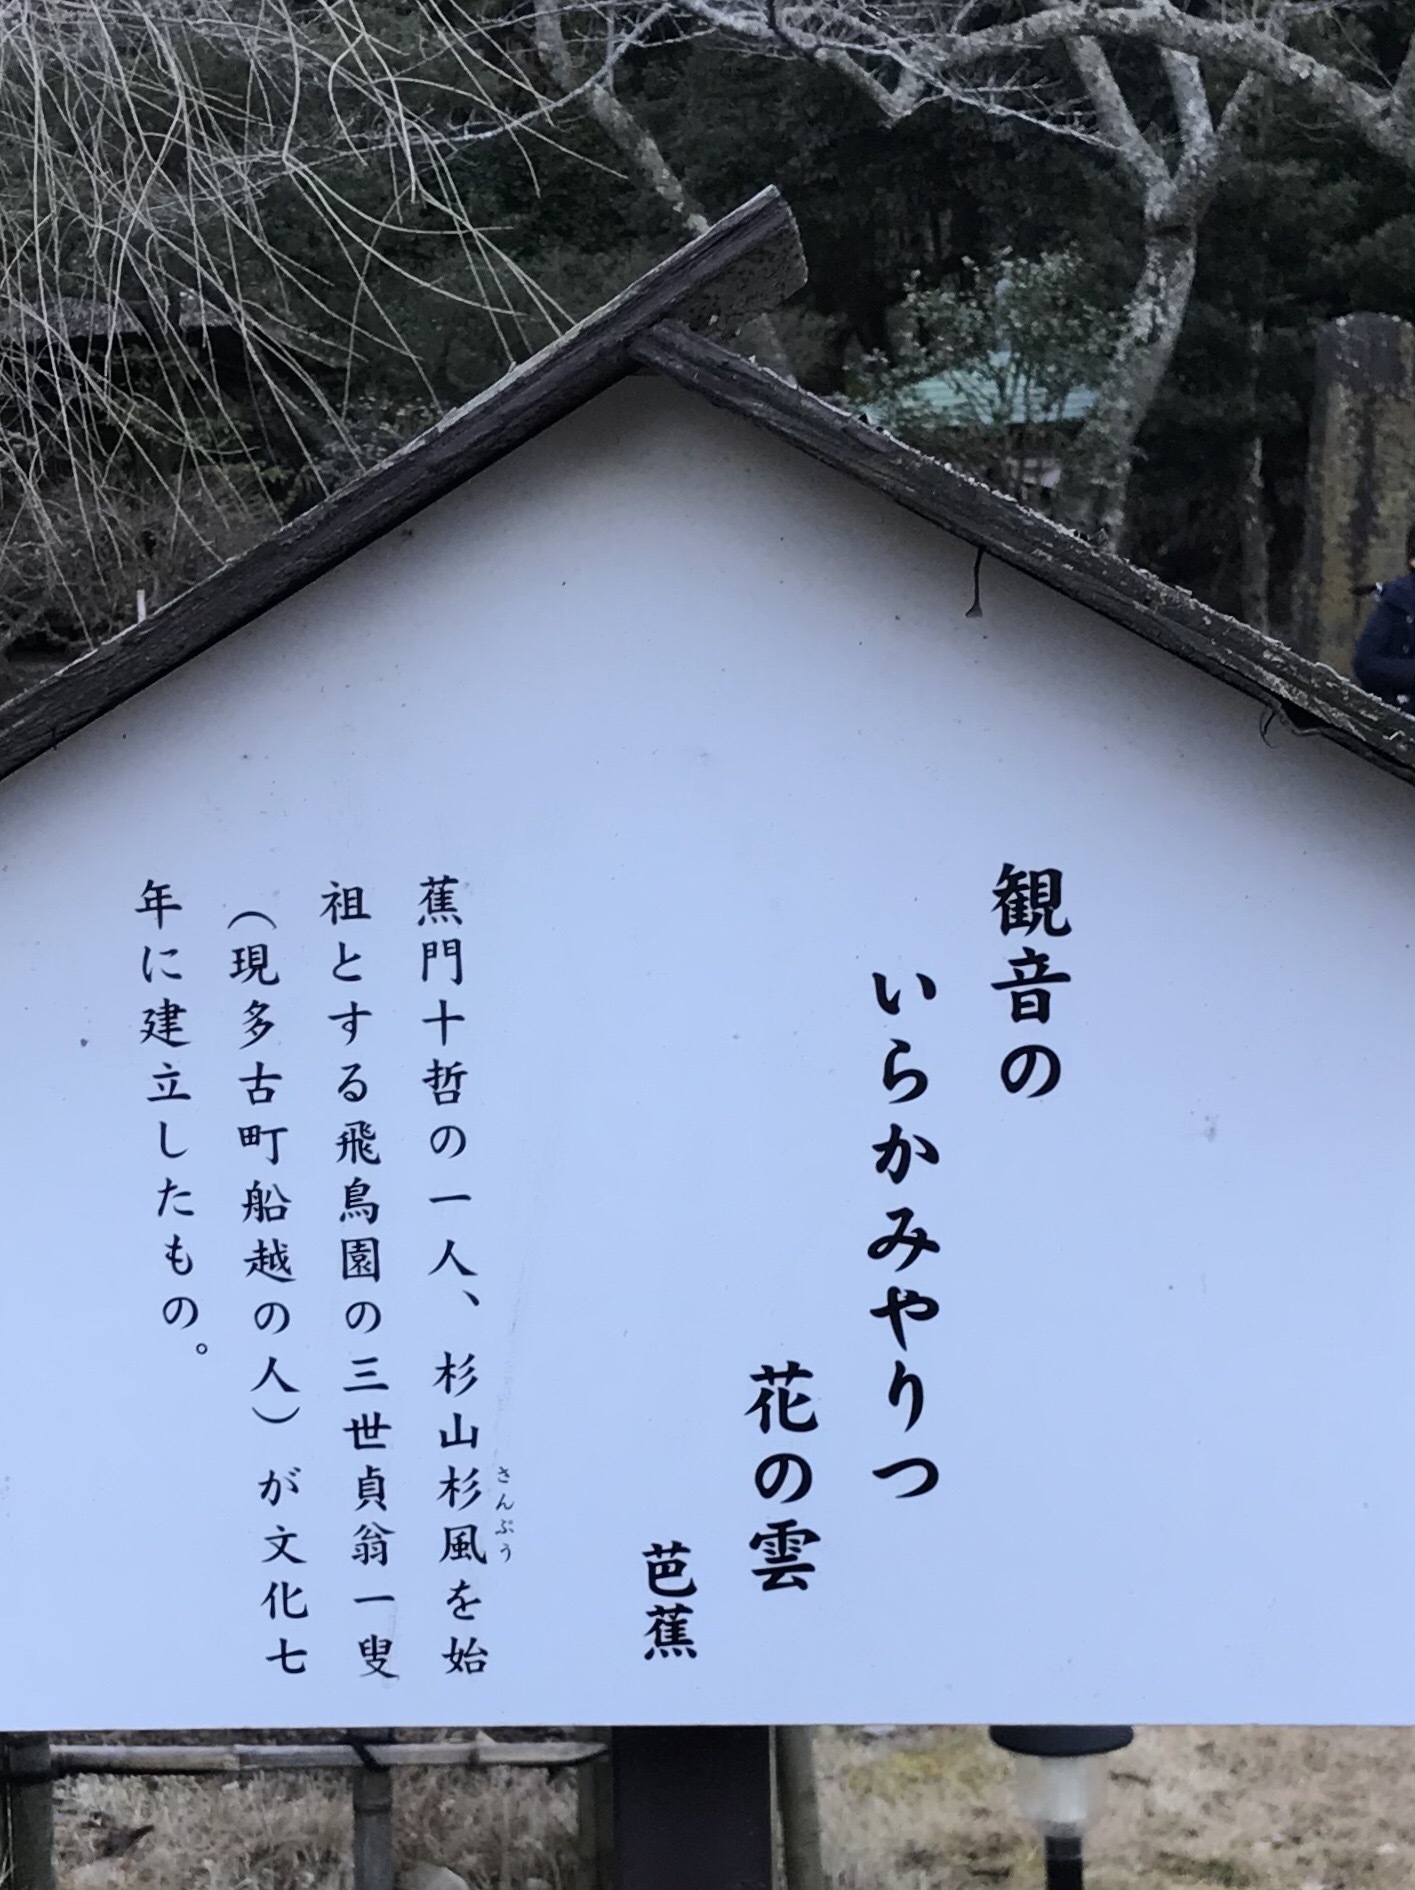 観音の
いらかみやりつ
花の雲
芭蕉
蕉門十哲の一人、杉山杉風を始
さんぷう
祖とする飛鳥園の三世貞翁一叟
（現多古町船越の人）が文化七
年に建立したもの。